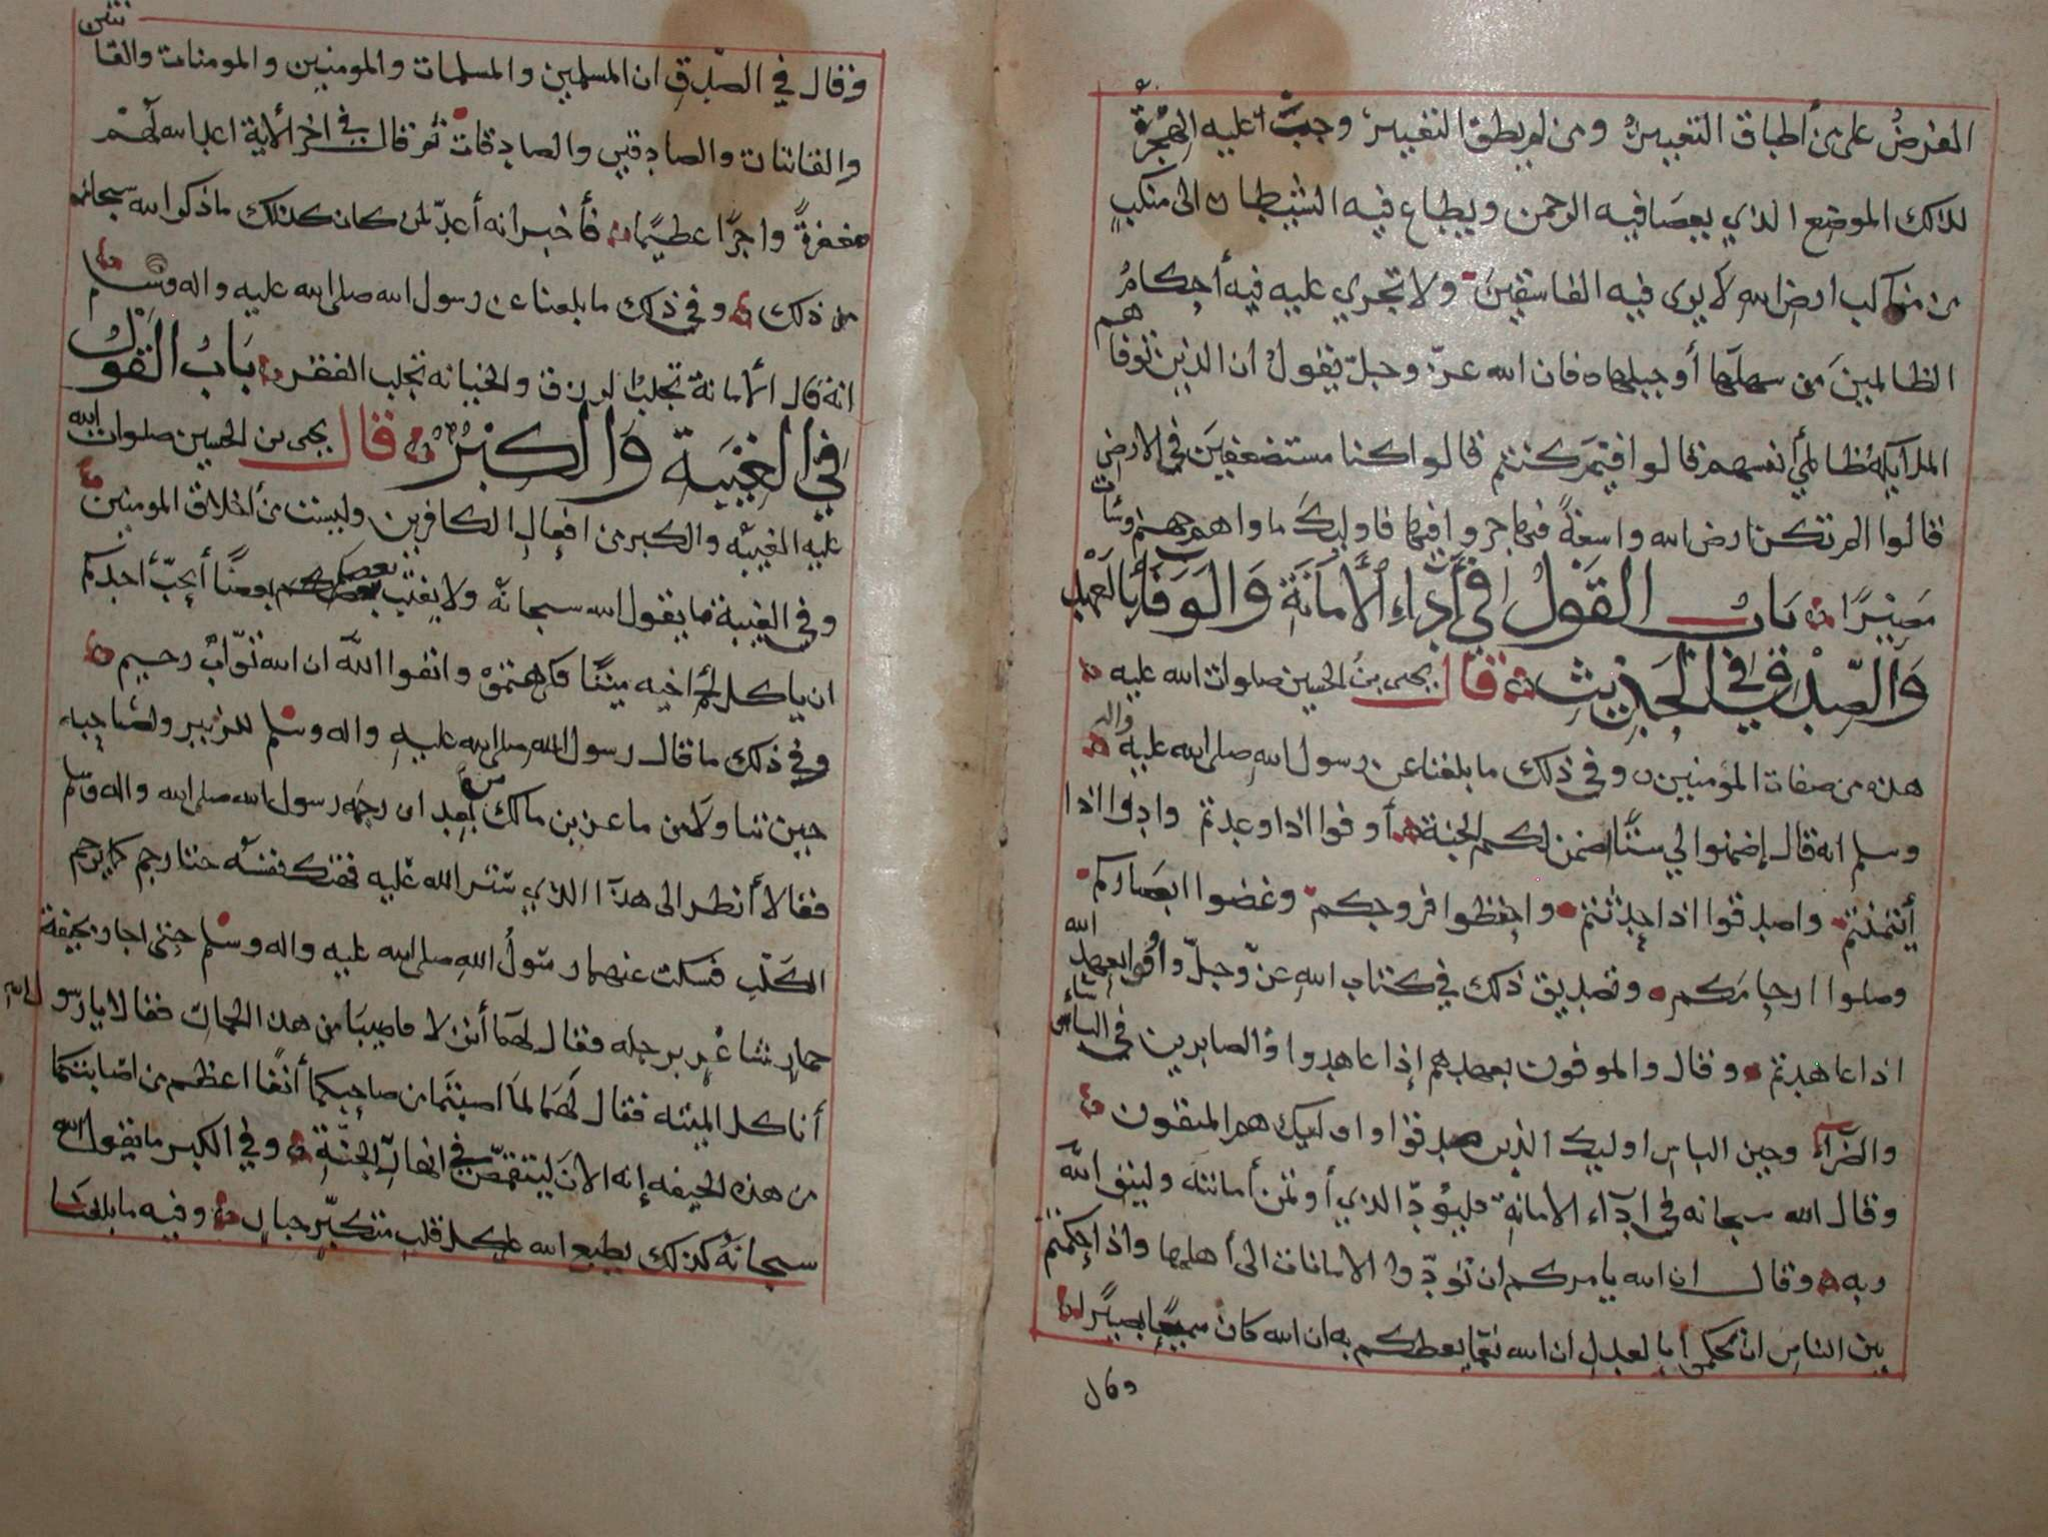 المفرض على من أطاق التغيير ومن لم يطق التغيير وجبت عليه الهجرة
لذلك الموضع الذي يعصا فيه الرحمن ويطاع فيه الشيطان الى منكب
من مناكب ارض الله لا يرى فيه الفاسقين ولا تجري عليه فيه أحكام
الظالمين من سهلها أو جبلها فان الله عز وجل يقول ان الذين توفاهم
الملايكة ظالمي أنفسهم قالوا فيم كنتم قالوا كنا مستضعفين في الارض
قالوا الم تكن ارض الله واسعة فتهاجروا فيها فاوليك ماواهم جهنم وسات
مصيرا باب القول في أداء الأمانة والوفاء بالعهد
والصدق في الحديث قال يحيى بن الحسين صلوات الله عليه
هذه من صفات المؤمنين وفي ذلك ما بلغنا عن رسول الله صلى الله عليه واله
وسلم انه قال إضمنوا لي ستا اضمن لكم الجنة أوفوا اذا وعدتم وادوا اذا
أيتمنتم واصدقوا اذا حدثتم واحفظوا فروجكم وغضوا ابصاركم
وصلوا ارحامكم وتصديق ذلك في كتاب الله عز وجل وأوفوا بعهد الله
اذا عاهدتم وقال والموفون بعهدهم إذا عاهدوا والصابرين في الباساء
والضراء وحين الباس اوليك الذين صدقوا واوليك هم المتقون
وقال الله سبحانه في اداء الامانة فليؤد الذي أوتمن أمانته وليتق الله
ربه وقال ان الله يامركم ان تؤدوا الامانات الى أهلها واذا حكمتم
بين الناس ان تحكموا بالعدل ان الله نعما يعظكم به ان الله كان سميعا بصيرا
وقال
وقال في الصدق ان المسلمين والمسلمات والمومنين والمومنات والقانتين
والقانتات والصادقين والصادقات ثم قال في اخر الأية اعد الله لهم
مغفرة واجرا عظيما فأخبر انه أعد لمن كان كذلك ما ذكر الله سبحانه
من ذلك وفي ذلك ما بلغنا عن رسول الله صلى الله عليه واله وسلم
انه قال الأمانة تجلب الرزق والخيانه تجلب الفقر باب القول
في الغيبة والكبر قال يحيى بن الحسين صلوات الله
عليه الغيبه والكبر من افعال الكافرين وليست من أخلاق المومنين
وفي الغيبة ما يقول الله سبحانه ولا يغتب بعضكم بعضا أيحب أحدكم
ان ياكل لحم اخيه ميتا فكرهتموه واتقوا الله ان الله تواب رحيم
وفي ذلك ما قال رسول الله صلى الله عليه واله وسلم للزبير ولصاحبه
حين تناولا من ماعز بن مالك من بعد ان رجمه رسول الله صلى الله واله وسلم
فقالا أنظر الى هذا الذي ستر الله عليه فهتك نفسه حتا رجم كما يرجم
الكلب فسكت عنهما رسول الله صلى الله عليه واله وسلم حتى اجاز بجيفة
حمار شاغر برجله فقال لهما أنزلا فاصيبا من هذا الحمار فقالا يا رسول الله
أناكل الميته فقال لهما لما اصبتما من صاحبكما أنفا اعظم من اصابتكما
من هذه الجيفه إنه الان ليتقمص في انهار الجنة وفي الكبر ما يقول الله
سبحانه كذلك يطبع الله على كل قلب متكبر جبار وفيه ما بلغنا